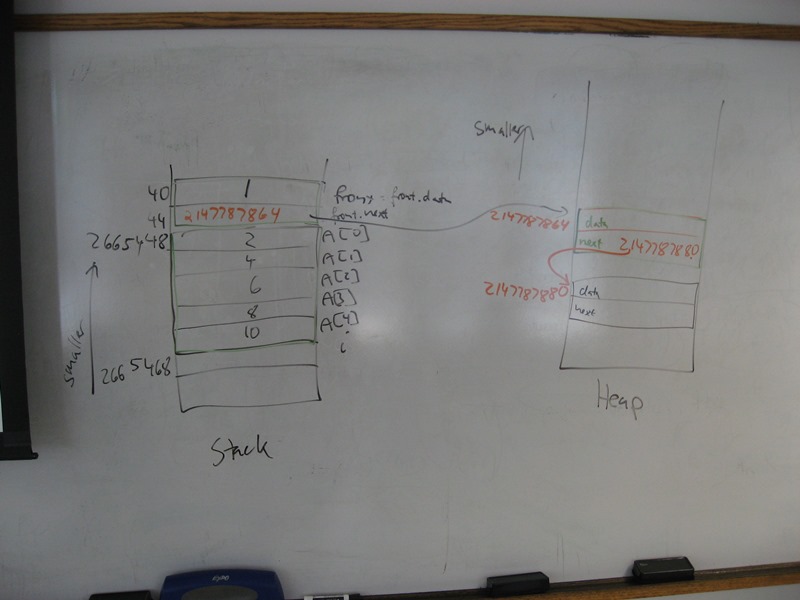 smaller
40 1 front.data
44 2147787864 front.next
2665448 2 A[0]
4 A[1]
6 A[2]
8 A[3]
10 A[4]
i
2665468
smaller
Stack
2147787864 data
next 2147787880
2147787880 data
next
Heap
Expo